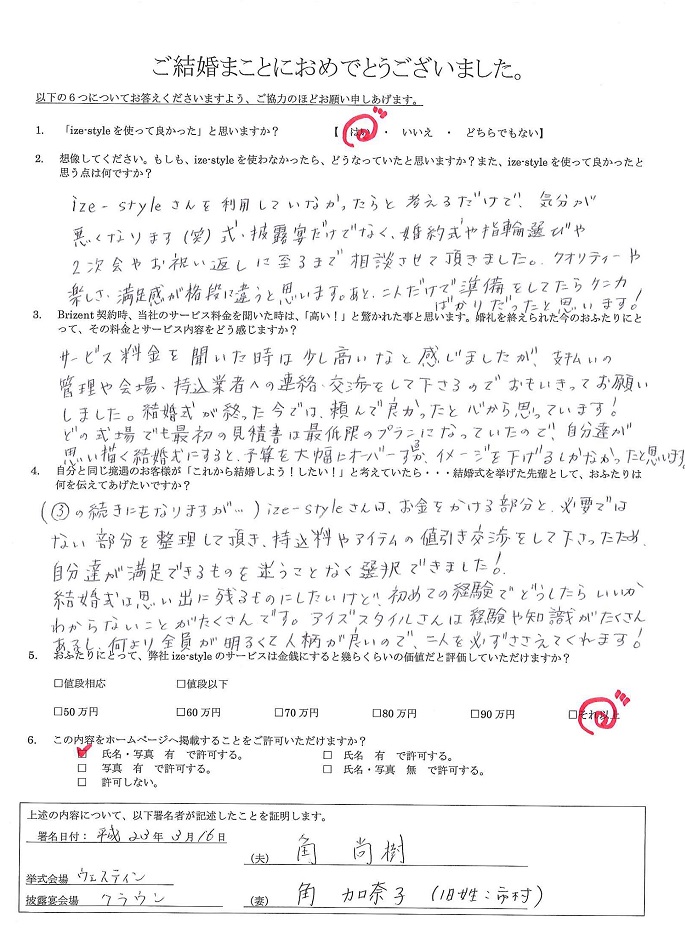 ご結婚まことにおめでとうございました。
以下の６つについてお答えくださいますよう、ご協力のほどお願い申しあげます。
1. 「ize-styleを使って良かった」と思いますか？ 【 はい ・ いいえ ・ どちらでもない】
2. 想像してください。もしも、ize-styleを使わなかったら、どうなっていたと思いますか？また、ize-styleを使って良かったと
思う点は何ですか？
ize-styleさんを利用していなかったらと考えるだけで、気分が
悪くなります(笑) 式・披露宴だけでなく、婚約式や指輪選びや
2次会やお祝い返しに至るまで相談させて頂きました。クオリティーや
楽しさ、満足感が格段に違うと思います。あと、二人だけで準備をしてたらケンカ
ばかりだったと思います！
3. Brizent契約時、当社のサービス料金を聞いた時は、「高い！」と驚かれた事と思います。婚礼を終えられた今のおふたりにと
って、その料金とサービス内容をどう感じますか？
サービス料金を聞いた時は少し高いなと感じましたが、支払いの
管理や会場、持込業者への連絡、交渉をして下さるのでおもいきってお願い
しました。結婚式が終った今では、頼んで良かったと心から思っています！
どの式場でも最初の見積書は最低限のプランになっていたので、自分達が
思い描く結婚式にすると、予算を大幅にオーバーするか、イメージを下げるしかなかったと思います。
4. 自分と同じ境遇のお客様が「これから結婚しよう！したい！」と考えていたら・・・結婚式を挙げた先輩として、おふたりは
何を伝えてあげたいですか？
(③の続きにもなりますが…) ize-styleさんは、お金をかける部分と、必要では
ない部分を整理して頂き、持込料やアイテムの値引き交渉をして下さったため、
自分達が満足できるものを迷うことなく選択できました！
結婚式は思い出に残るものにしたいけど、初めての経験でどうしたらいいか
わからないことがたくさんです。アイズスタイルさんは経験や知識がたくさん
あるし、何より全員が明るくて人柄が良いので、二人を必ずささえてくれます！
5. おふたりにとって、弊社ize-styleのサービスは金銭にすると幾らくらいの価値だと評価していただけますか？
□値段相応 □値段以下
□50万円 □60万円 □70万円 □80万円 □90万円 □それ以上
6. この内容をホームページへ掲載することをご許可いただけますか？
□ 氏名・写真 有 で許可する。 □ 氏名 有 で許可する。
□ 写真 有 で許可する。 □ 氏名・写真 無 で許可する。
□ 許可しない。
上述の内容について、以下署名者が記述したことを証明します。
署名日付： 平成 23年 3月 16日
(夫) 角 尚樹
挙式会場 ウェスティン
披露宴会場 クラウン
(妻) 角 加奈子 (旧姓：市村)